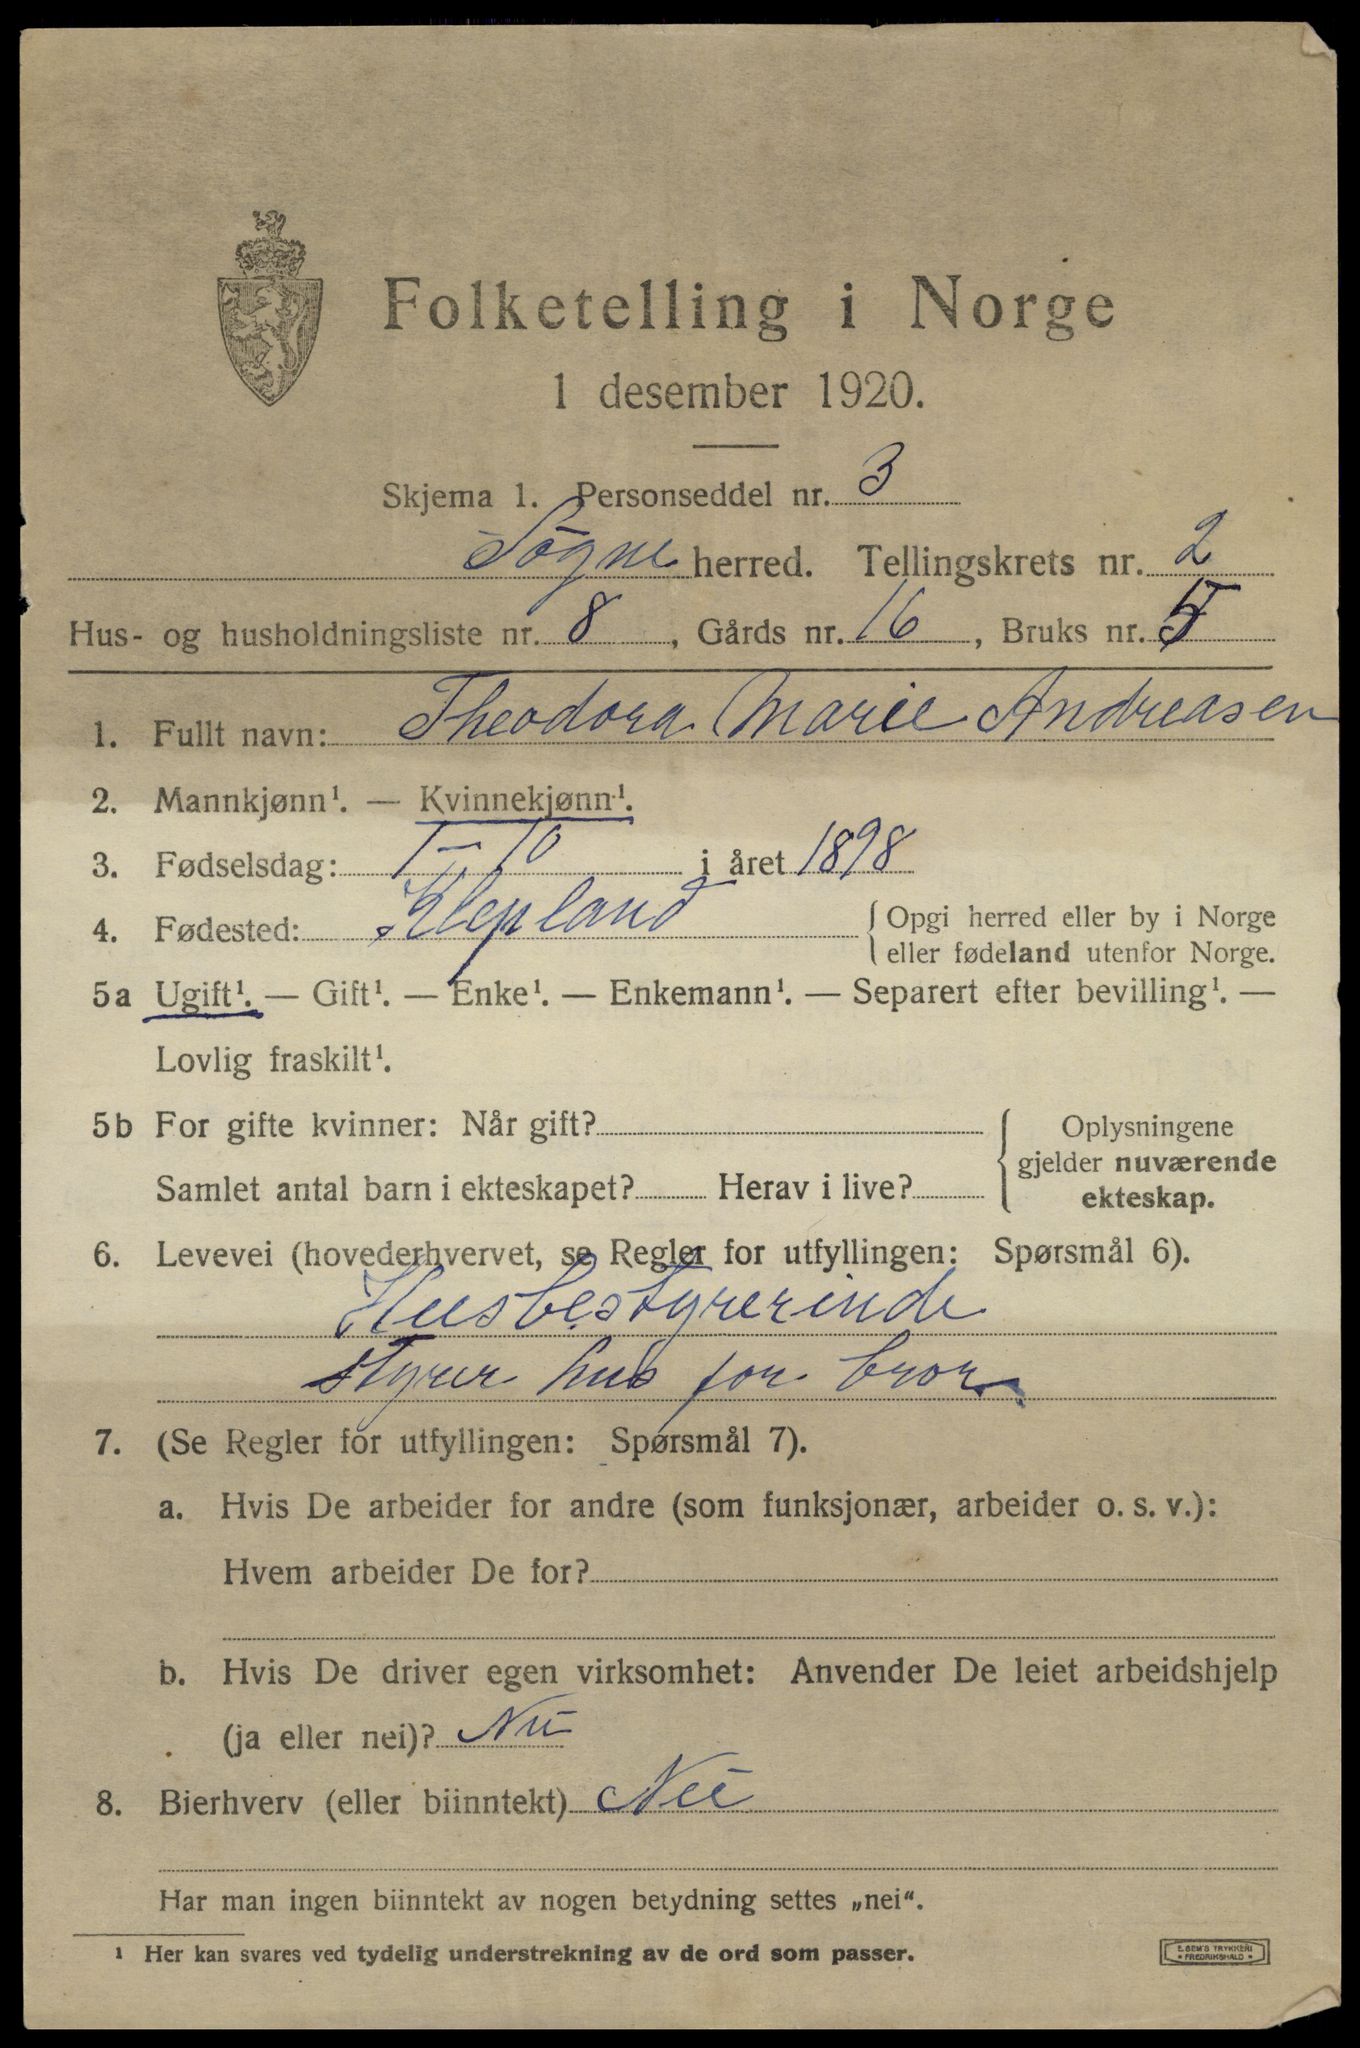 Folketelling i Norge
1 desember 1920.
Skjema 1. Personseddel nr. 3
Søgne herred. Tellingskrets nr. 2
Hus- og husholdningsliste nr. 8, Gårds nr. 16, Bruks nr. 5
1. Fullt navn: Theodora Marie Andreasen
2. Mannkjønn¹. — Kvinnekjønn¹.
3. Fødselsdag: 1-10 i året 1898
4. Fødested: Klepland { Opgi herred eller by i Norge
eller fødeland utenfor Norge.
5a Ugift¹. — Gift¹. — Enke¹. — Enkemann¹. — Separert efter bevilling¹. —
Lovlig fraskilt¹.
5b For gifte kvinner: Når gift? { Oplysningene
gjelder nuværende
Samlet antal barn i ekteskapet? Herav i live? ekteskap.
6. Levevei (hovederhvervet, se Regler for utfyllingen: Spørsmål 6).
Husbestyrerinde
styrer hus for bror
7. (Se Regler for utfyllingen: Spørsmål 7).
a. Hvis De arbeider for andre (som funksjonær, arbeider o. s. v.):
Hvem arbeider De for?
b. Hvis De driver egen virksomhet: Anvender De leiet arbeidshjelp
(ja eller nei)? Nei
8. Bierhverv (eller biinntekt) Nei
Har man ingen biinntekt av nogen betydning settes „nei“.
¹ Her kan svares ved tydelig understrekning av de ord som passer.
E. SEM'S TRYKKERI
* FREDRIKSHALD *